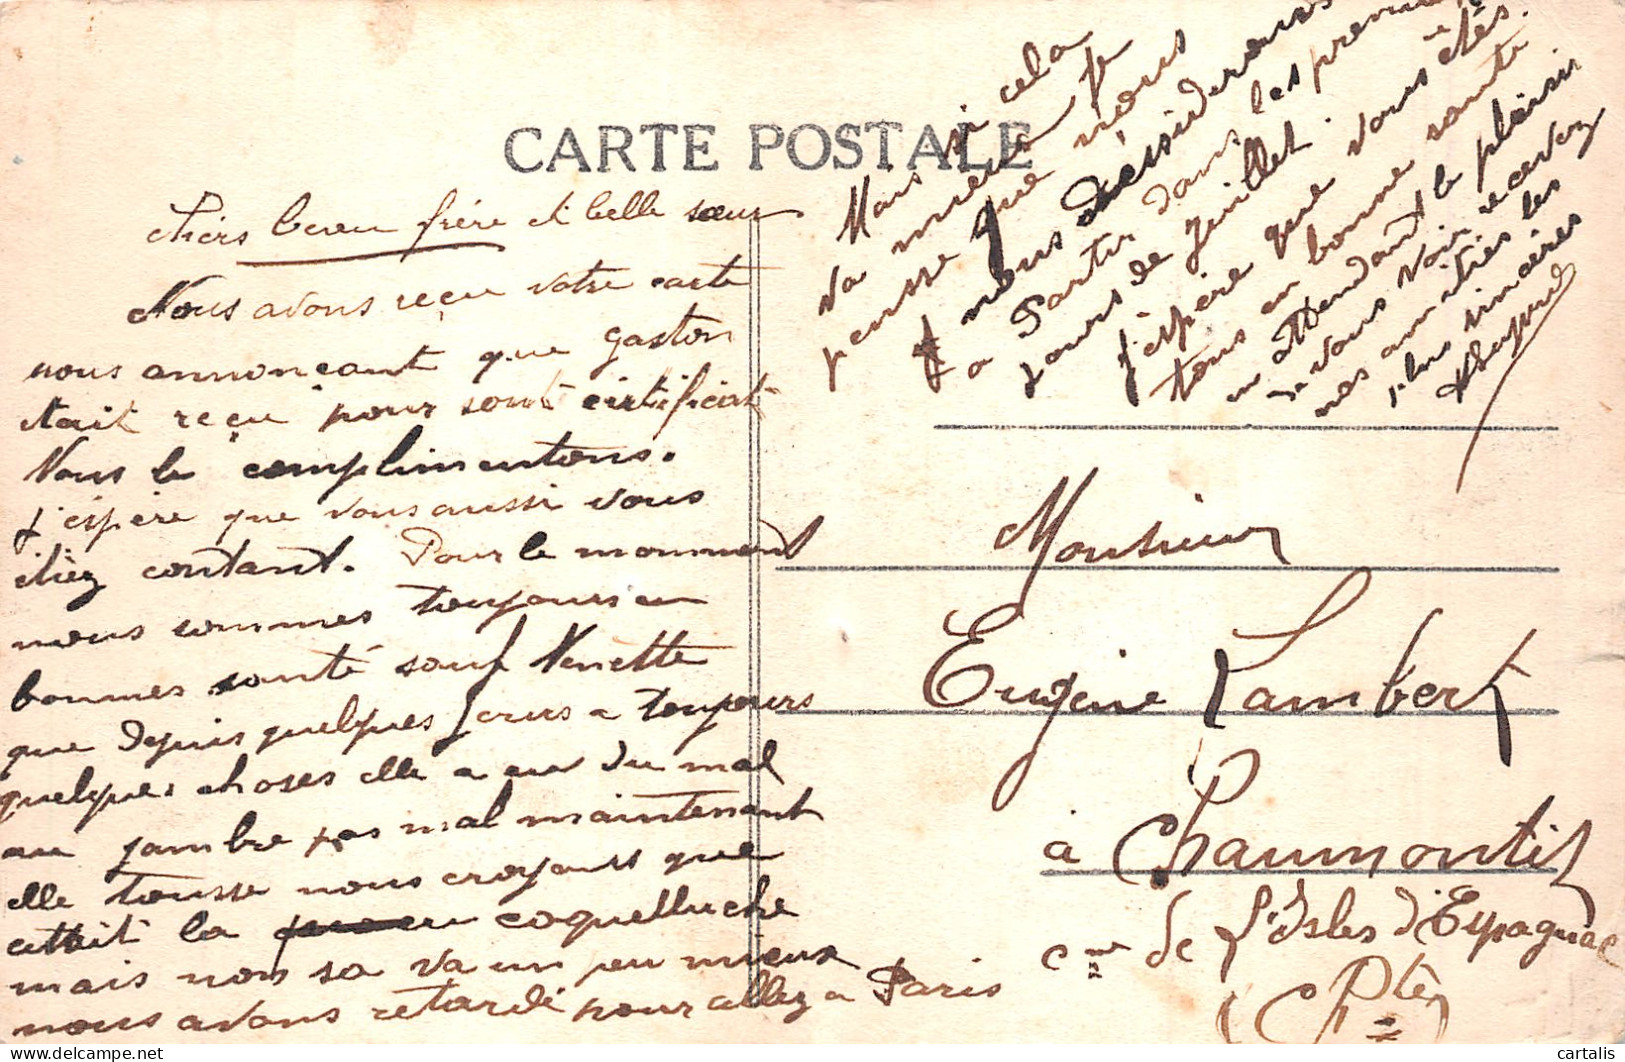 CARTE POSTALE
chers beau frère et belle sœur
Nous avons reçu votre carte
nous annonçant que gaston
était reçu pour sont cirtificat
Nous le complimentons.
j'éspère que vous aussi vous
êtiez contant. Pour le momment
nous sommes toujours en
bonnes santé sauf Nenette
que depuis quelques jours a toujours
quelques choses elle a eu du mal
au jambe pas mal maintenant
elle tousse nous croyons que
cettait la coqueluche
mais non sa va un peu mieux
nous avons retardé pour allez a Paris
Mais si cela
va mieux je
pensse que nous
nous déssiderons
a Partir dans les premiers
jours de Juillet.
j'éspère que vous êtés
tous en bonne santé.
en attendant le plaisir
de vous voir recevez
nos amitiés les
plus sincères
Monsieur
Eugène Lambert
à Chaumontil
cne de St Isles d'Espagnac
(Cte)
cartalis